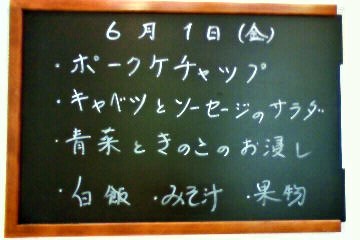 6月1日(金)
・ポークケチャップ
・キャベツとソーセージのサラダ
・青菜ときのこのお浸し
・白飯 ・みそ汁 ・果物